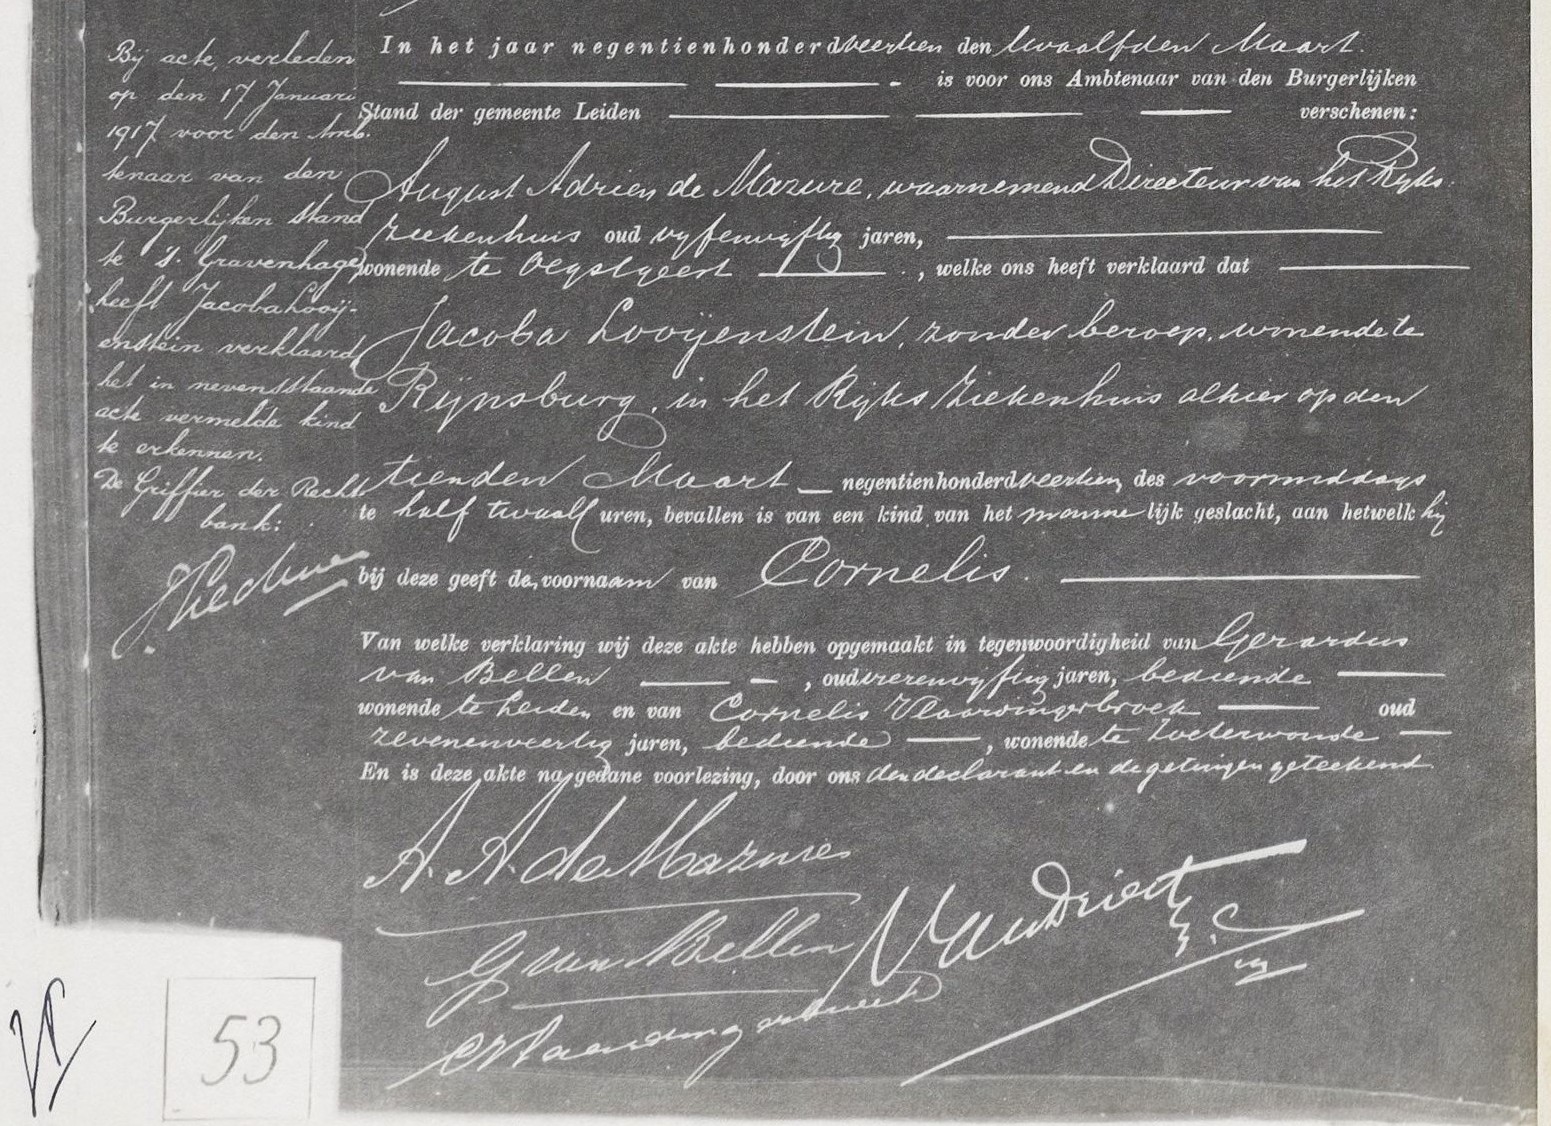 Bij acte, verleden
op den 17 Januari
1917 voor den Amb-
tenaar van den
Burgerlijken Stand
te 's Gravenhage,
heeft Jacoba Looij-
enstein verklaard
het in nevensstaande
acte vermelde kind
te erkennen.
De Griffier der Recht-
bank:
In het jaar negentienhonderdveertien den twaalfden Maart.
is voor ons Ambtenaar van den Burgerlijken
Stand der gemeente Leiden verschenen:
August Adrien de Mazure, waarnemend Directeur van het Rijks
Ziekenhuis oud vyfenvyftig jaren,
wonende te Oegstgeest, welke ons heeft verklaard dat
Jacoba Looijenstein, zonder beroep, wonende te
Rijnsburg, in het Rijks Ziekenhuis alhier op den
tienden Maart negentienhonderdveertien, des voormiddags
te half twaalf uren, bevallen is van een kind van het mannelijk geslacht, aan hetwelk hij
bij deze geeft de, voornaam van Cornelis.
Van welke verklaring wij deze akte hebben opgemaakt in tegenwoordigheid van Gerardus
van Bellen, oud vierenvyftig jaren, bediende
wonende te Leiden en van Cornelis Vlaardingerbroek oud
zevenenveertig jaren, bediende, wonende te Zoeterwoude
En is deze akte na gedane voorlezing, door ons den declarant en de getuigen geteekend
A. A. de Mazure
G van Bellen
C Vlaardingerbroek
53